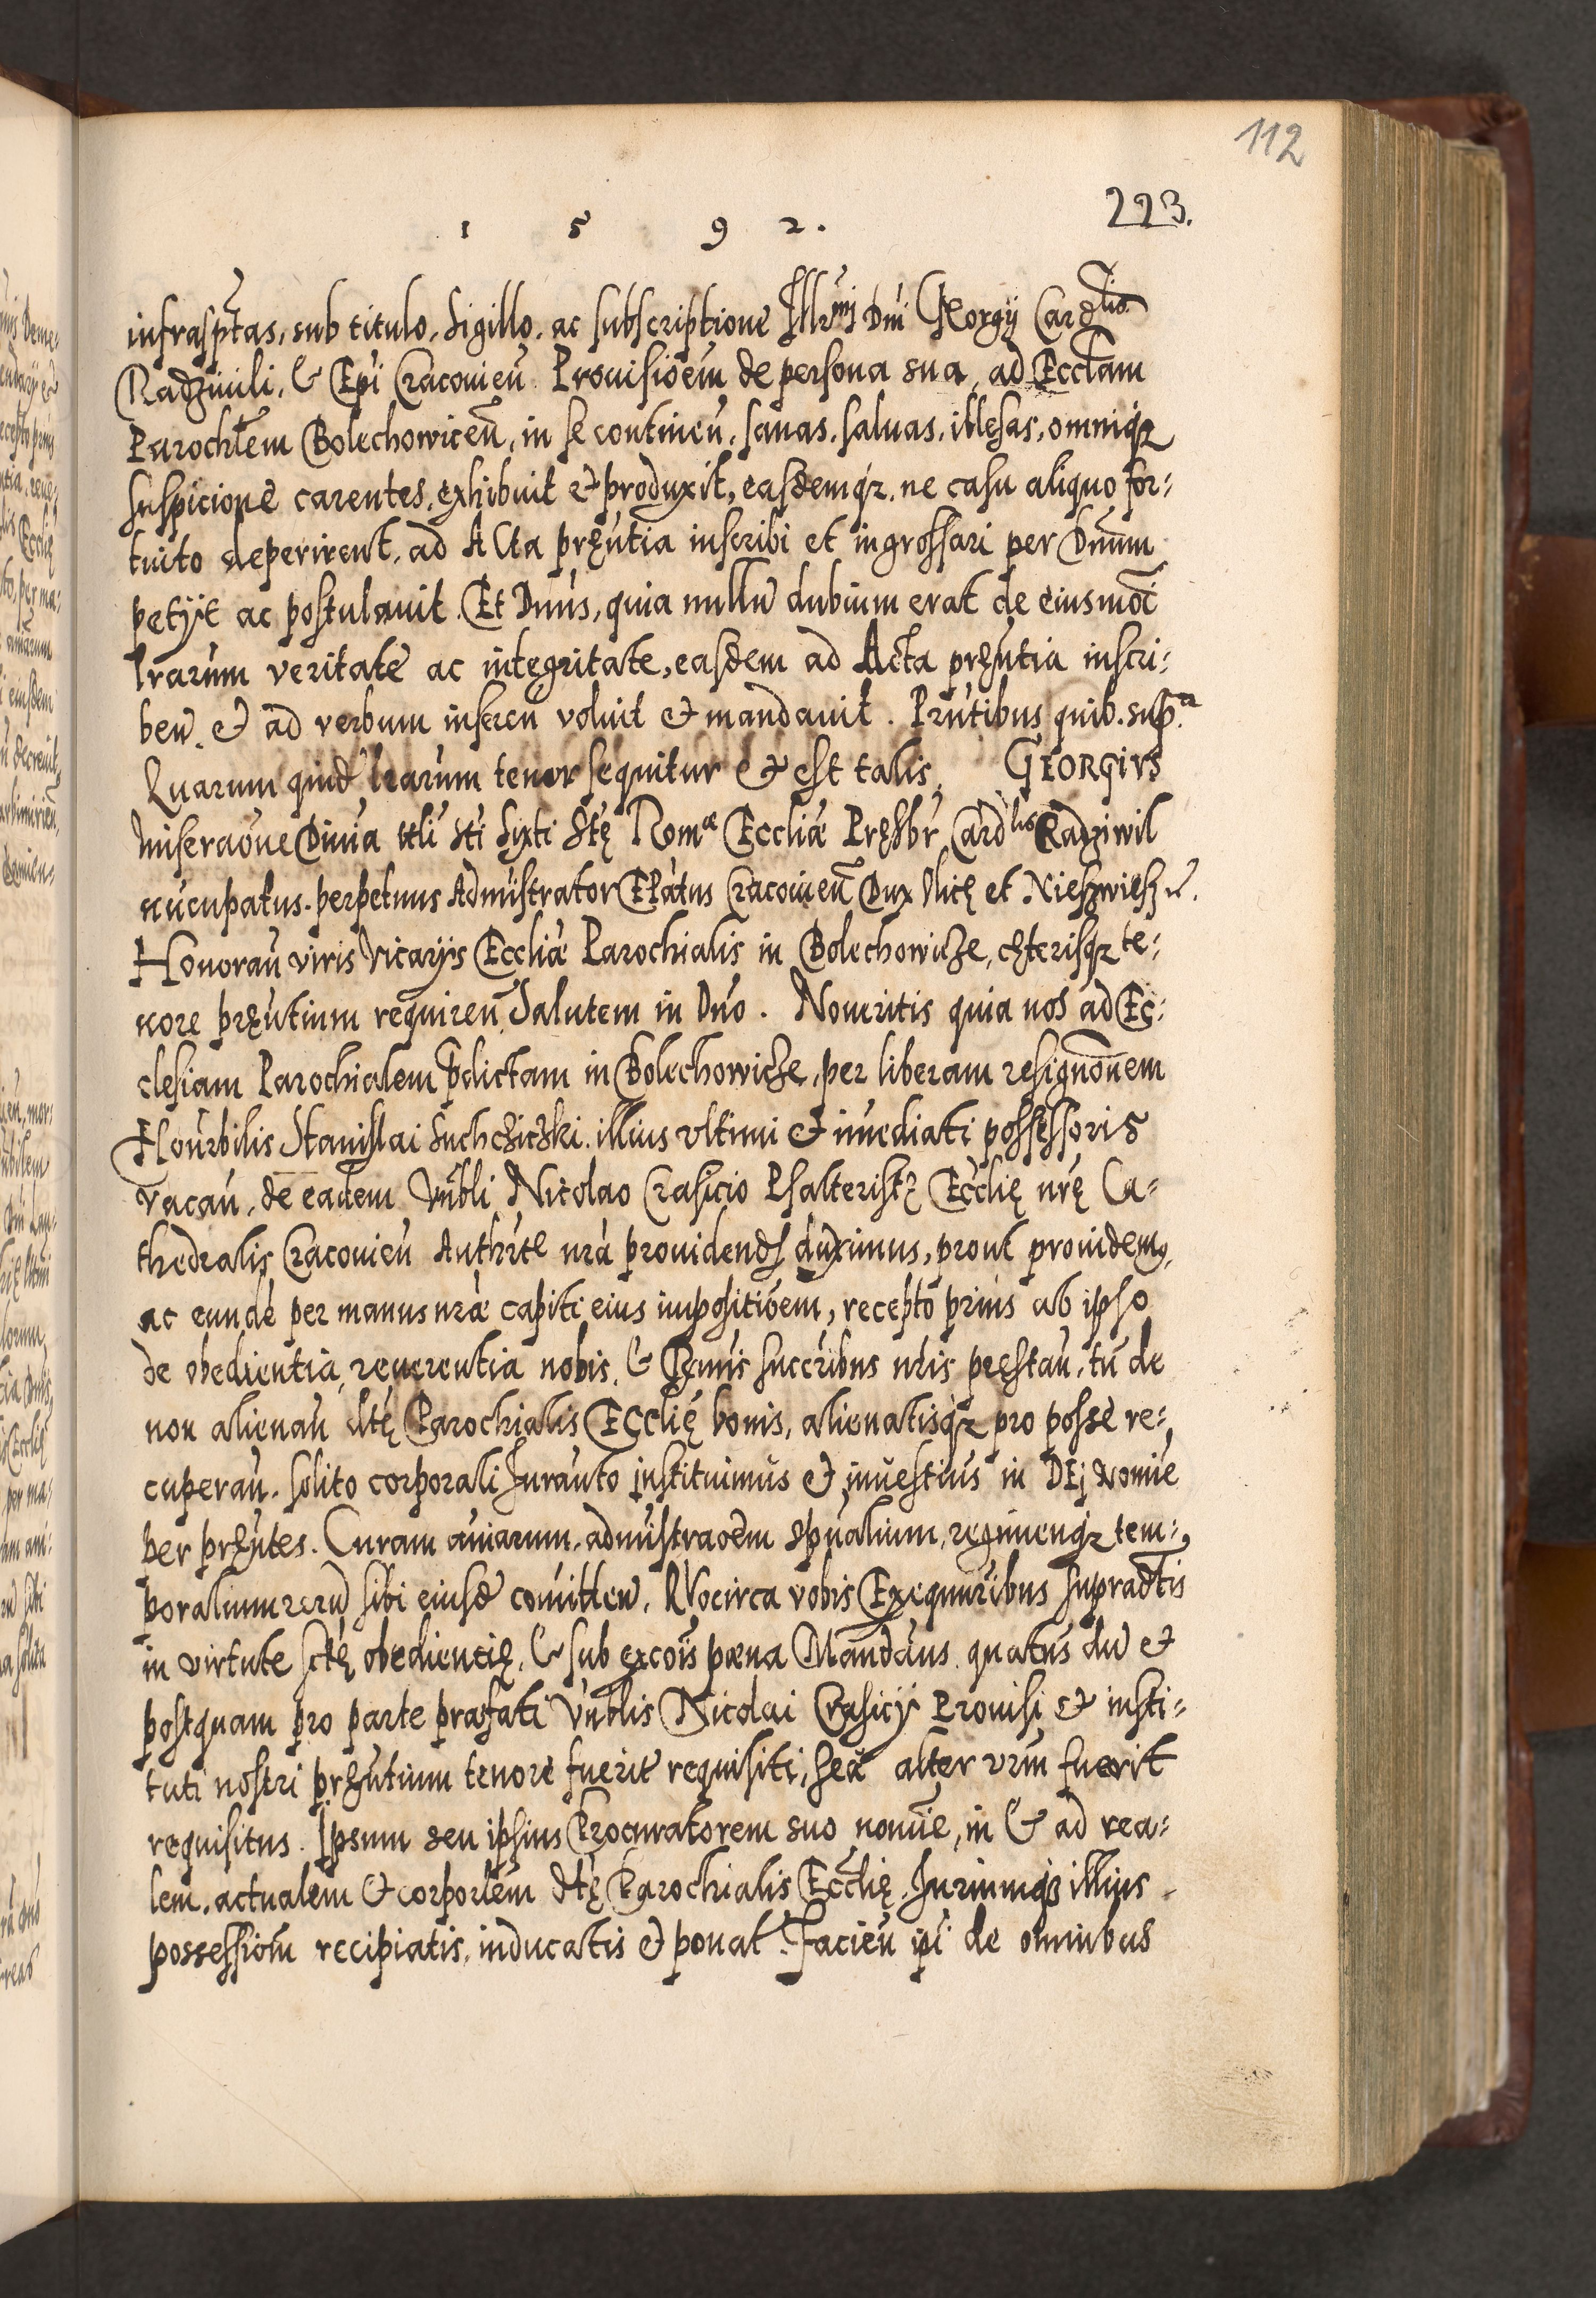 112
223.
1 5 9 2.
infrasptas, sub titulo, Sigillo, ac subscriptione Illrmi Dni Georgij Cardlis
Radziuili, & Epi Cracouien Prouisioem de persona sua, ad Ecclam
Parochlem Bolechowicen, in se continen, sanas, saluas, illesas, omniqz
suspicione carentes, exhibuit et produxit, easdemqz, ne casu aliquo for=
tuito deperirent, ad Acta pręntia inscribi et ingrossari per Dnum
petijt ac postulauit. Et Dnus, quia nullu dubium erat de eiusmoi
lrarum veritate ac integritate, easdem ad Acta pręntia inscri=
ben, et ad verbum inseren voluit et mandauit. Prntibus quib. supra
Quarum quid lrarum tenor sequitur et est talis, GEORGIVS
miseraone Diuia ttli Sti Sixti Stę Romæ Eccliæ Pręsbr Cardlis Radziwil
nucupatus. perpetuus Admistrator Epatus Cracouien Dux Olicę et Nieszwiesz
Honoran viris Vicarijs Eccliæ Parochialis in Bolechowicze, cęterisqz te=
nore pręntium requiren, Salutem in Dno. Noueritis quia nos ad Ec=
clesiam Parochialem pdictam in Bolechowicze, per liberam resignonem
Honrbilis Stanislai Suchczicki illius vltimi et imediati possessoris
vacan, de eadem Vnbli Nicolao Crasicio Psalteristę Ecclię nrę Ca=
thedralis Cracouien Authrte nra prouidend duximus, prout prouidem,
ac eunde per manus nræ capiti eius impositioem, recepto prius ab ipso
de obedientia, reuerentia nobis, & Rmis succribus nris pręstan, tu de
non alienan dtę Parochialis Ecclię bonis, alienatisqz pro posse re=
cuperan, solito corporali Iuranto instituimus et inuestius in DEi nomie
per pręntes. Curam aniarum, admistraoem Spualium, regimenqz tem=
poralium reru sibi eiusd comitten, QVocirca vobis Exequuribus supradtis
in virtute sctę obedientię, & sub excois pæna Mandaus quatus du et
postquam pro parte præfati Vnblis Nicolai Crasicij Prouisi et insti=
tuti nostri pręntium tenore fuerit requisiti, seu alter vrm fuerit
requisitus. Ipsum seu ipsius Procuratorem suo nomie, in & ad rea=
lem, actualem et corporlem dtę Parochialis Ecclię, Iuriumqz illius
possessiom recipiatis, inducatis et ponat. Facien ipi de omnibus